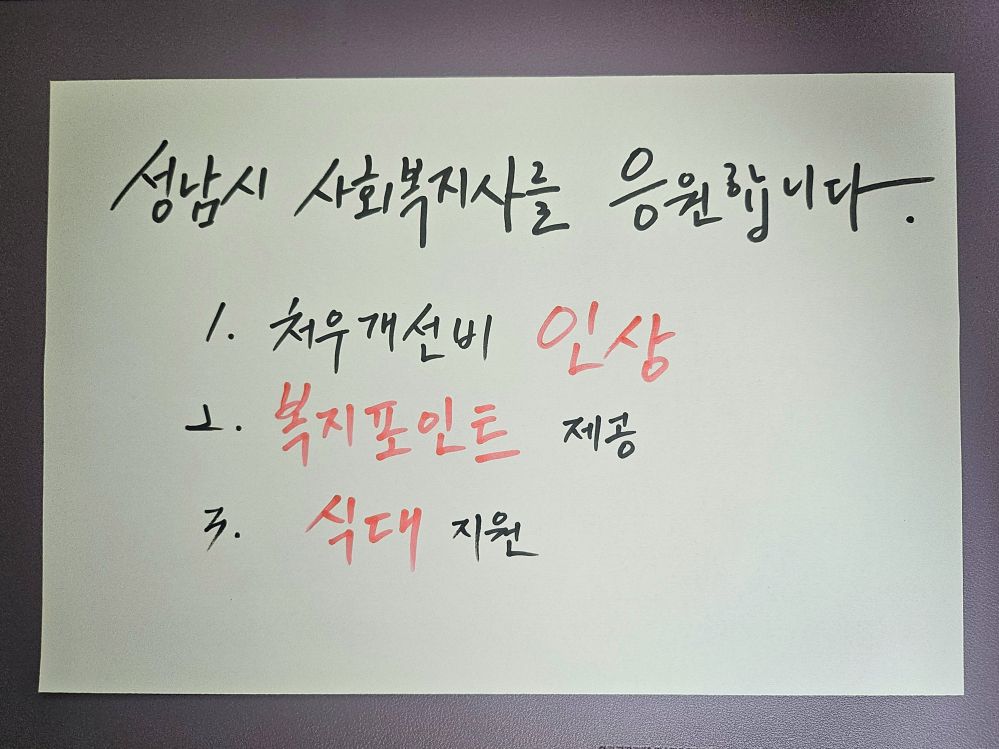 성남시 사회복지사를 응원합니다.
1. 처우개선비 인상
2. 복지포인트 제공
3. 식대 지원